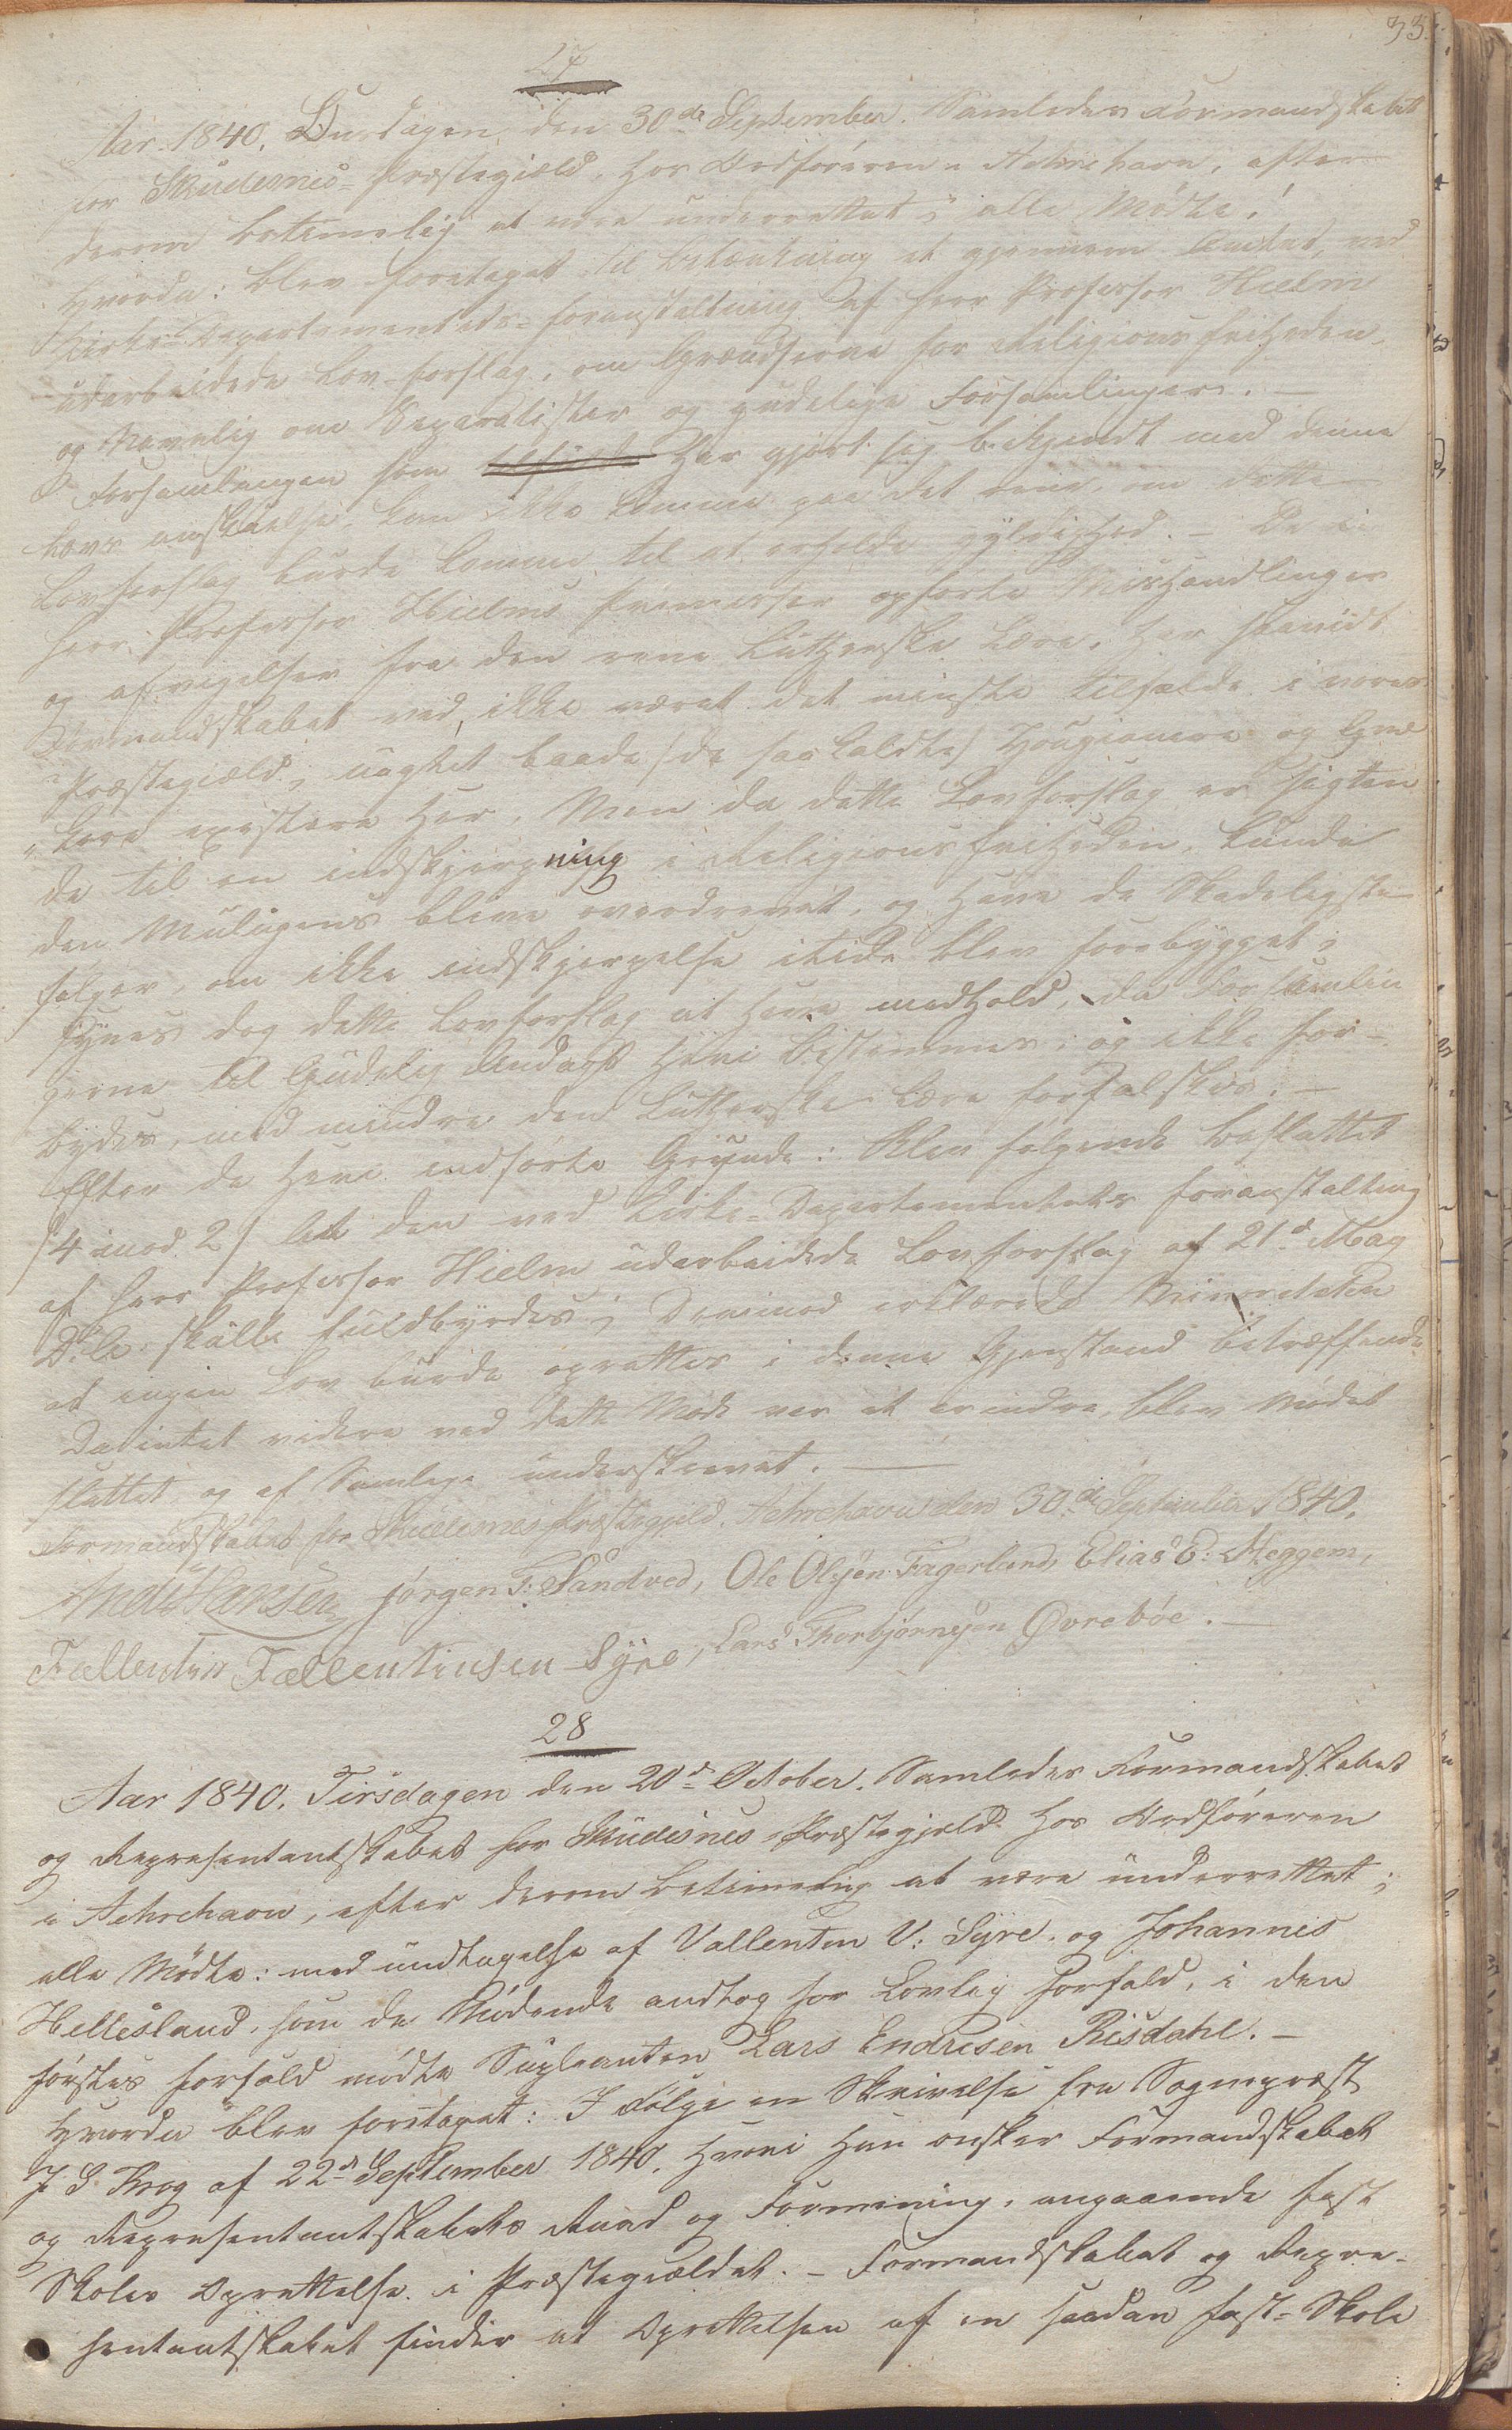 33.
27
Aar 1840, Onsdagen den 30de September. Samledes Formandskabet
for Skudesnes-Præstegiæld, hos Ordføreren i Aehrehavn, efter
derom betimelig at være underrettet; alle Mødte!
Hvorda: blev foretaget til betænkning et gjennem Amtet, ved
Kirke-Departementets-foranstaltning af Herr Professor Hielm
udarbeidede Lov-forslag, om Grændserne for Religionsfriheden,
og Navnlig om Separatister og gudelige Forsamlinger. —
Forsamlingen som har gjort sig bekjendt med denne
Lovs anskuelse, kan ikke komme paa det rene, om dette
Lovforslag burde komme til at erholde gyldighed. — De i
Herr Professor Hielms Præmisser opførte Mishandlinger
og afvigelser fra den rene Lutherske Lære, har saavidt
Formandskabet ved, ikke været det minste tilfælde i vores
Præstegiæld; uagtet baade /de saa kaldte/ Hougianere og
kere existere her. Men da dette Lovforslag er sigten
de til en indskjerpning i Religionsfriheden, kunde
den Muligens blive overdrevet, og have de Skadeligste
følger, om ikke indskjerpelse itide blev forebygget;
synes dog dette Lovforslag at have medhold, da Forsamlin
gerne til Gudelig Andagt heri bestemmes; og ikke for-
bydes, med mindre den Lutherske Lære forfalskes. —
Efter de heri indførte Grunde: blev følgende besluttet
/4 imod 2/ at den ved Kirke-Departementets foranstalting
af Herr Professor Hielm udarbeidede Lovforslag af 21d May
skulle fuldbyrdes; Derimod erklærede Minoriteten
at ingen Lov burde oprettes i denne Gjenstand betræffende
Da intet videre ved dette Møde var at erindre, blev Mødet
sluttet og af Samlege underskrevet. —
Formandskabet for Skudesnes Præstegjeld, Aehrehavn den 30de September 1840.
Hansen Jørgen T: Sandved, Ole Olsen Fagerland, Elias E: Meggem,
Fallentin Fællentinsen Syre, Lars Thorbjørnsen Øvrebøe. —
28
Aar 1840, Tirsdagen den 20de October. Samledes Formandskabet
og Representantskabet for Skudesnes-Præstegjeld hos Ordføreren
i Aehrehavn, efter derom betimelig at være underrettet;
alle Mødte: med undtagelse af Vallentin V: Syre, og Johannes
Hellesland, som de Mødende andtog for Lovlig forfald, i den
førstes forfald mødte Supleanten Lars Endresen Risdahl. —
Hvorda blev foretaget: I Følge en Skrivelse fra Sogneprest
J. S. Krog af 22de September 1840, hvori han ønsker Formandskabet
og Representantskabets Raad og Formening, angaaende fast
Skoles Oprettelse i Præstegiældet. — Formandskabet og Repre-
sentantskabet finder at Oprettelsen af en saadan fast-Skole